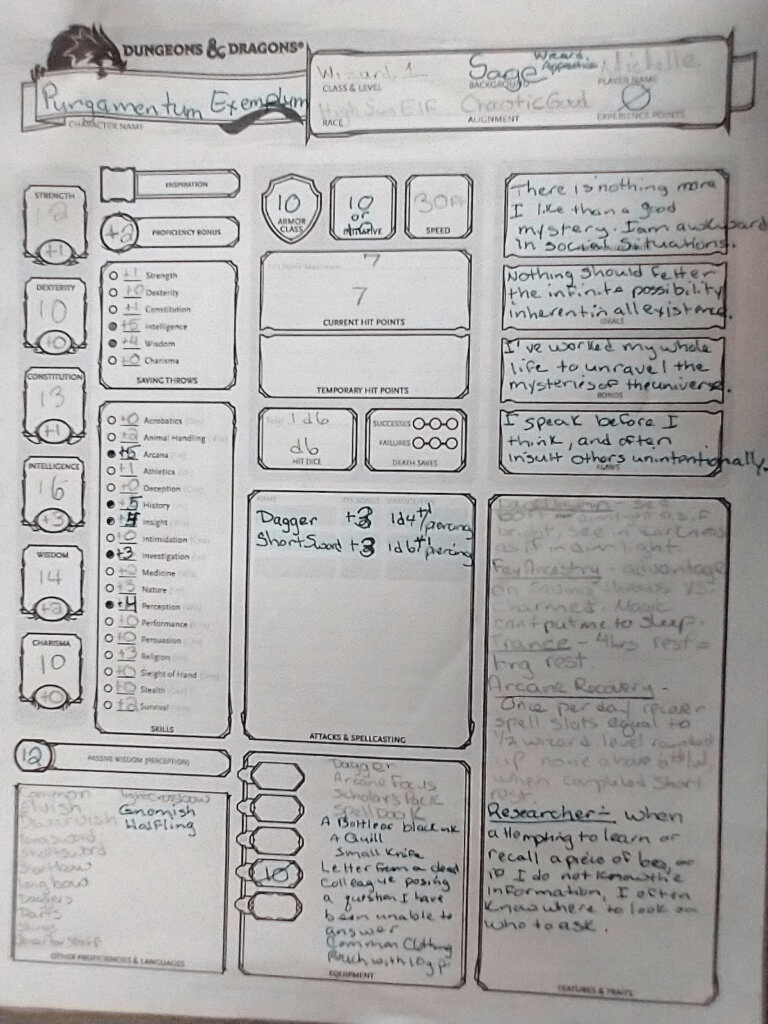 DUNGEONS & DRAGONS®
Purgamentum Exemplum
CHARACTER NAME
Wizard 1
CLASS & LEVEL
Sage Wizard Apprentice
BACKGROUND
Michelle
PLAYER NAME
High Sun Elf
RACE
Chaotic Good
ALIGNMENT
0
EXPERIENCE POINTS
STRENGTH
12
+1
DEXTERITY
10
+0
CONSTITUTION
13
+1
INTELLIGENCE
16
+3
WISDOM
14
+2
CHARISMA
10
+0
INSPIRATION
+2 PROFICIENCY BONUS
+1 Strength
+0 Dexterity
+1 Constitution
+5 Intelligence
+4 Wisdom
+0 Charisma
SAVING THROWS
+0 Acrobatics
+2 Animal Handling
+5 Arcana
+1 Athletics
+0 Deception
+5 History
Insight
+0 Intimidation
+3 Investigation
+2 Medicine
+3 Nature
+4 Perception
+0 Performance
+0 Persuasion
+3 Religion
+0 Sleight of Hand
+0 Stealth
+2 Survival
SKILLS
12 PASSIVE WISDOM (PERCEPTION)
Common light crossbow
Elvish Gnomish
Halfling
longsword
shortsword
shortbow
longbow
Daggers
Darts
Slings
OTHER PROFICIENCIES & LANGUAGES
10
ARMOR
CLASS
10
or
INITIATIVE
30ft
SPEED
7
7
CURRENT HIT POINTS
TEMPORARY HIT POINTS
1d6
d6
HIT DICE
SUCCESSES
FAILURES
DEATH SAVES
Dagger +3 1d4+1/piercing
ShortSword +3 1d6+1/piercing
ATTACKS & SPELLCASTING
Dagger
Arcane Focus
Scholars Pack
Spellbook
A Bottle of black ink
A Quill
Small Knife
10
Letter from a dead
Colleague posing
a question I have
been unable to
answer
Common Clothing
Pouch with 10gp
EQUIPMENT
There is nothing more
I like than a good
mystery. I am awkward
in social situations.
Nothing should fetter
the infinite possibility
inherent in all existence.
IDEALS
I've worked my whole
life to unravel the
mysteries of the universe.
BONDS
I speak before I
think, and often
insult others unintentionally.
FLAWS
Darkvision
bright, see in darkness
as if in dim light.
Fey Ancestry advantage
on Saving throws vs.
Charmed. Magic
cant put me to sleep.
Trance - 4hrs rest =
long rest.
Arcane Recovery -
Once per day recover
spell slots equal to
1/2 wizard level rounded
up none above 6th lvl
when completed short
rest
Researcher - when
attempting to learn or
recall a piece of
if I do not know the
information, I often
know where to look or
who to ask.
FEATURES & TRAITS